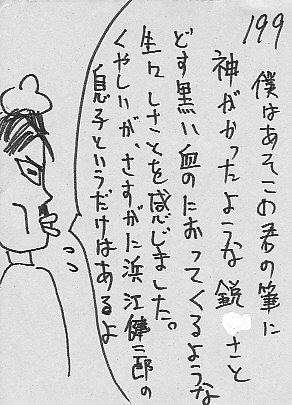 199
僕はあそこの君の筆に
神がかったような鋭さと
どす黒い血のにおってくるような
生々しさとを感じました。
くやしいが、さすがに浜江健二郎の
息子というだけはあるよ